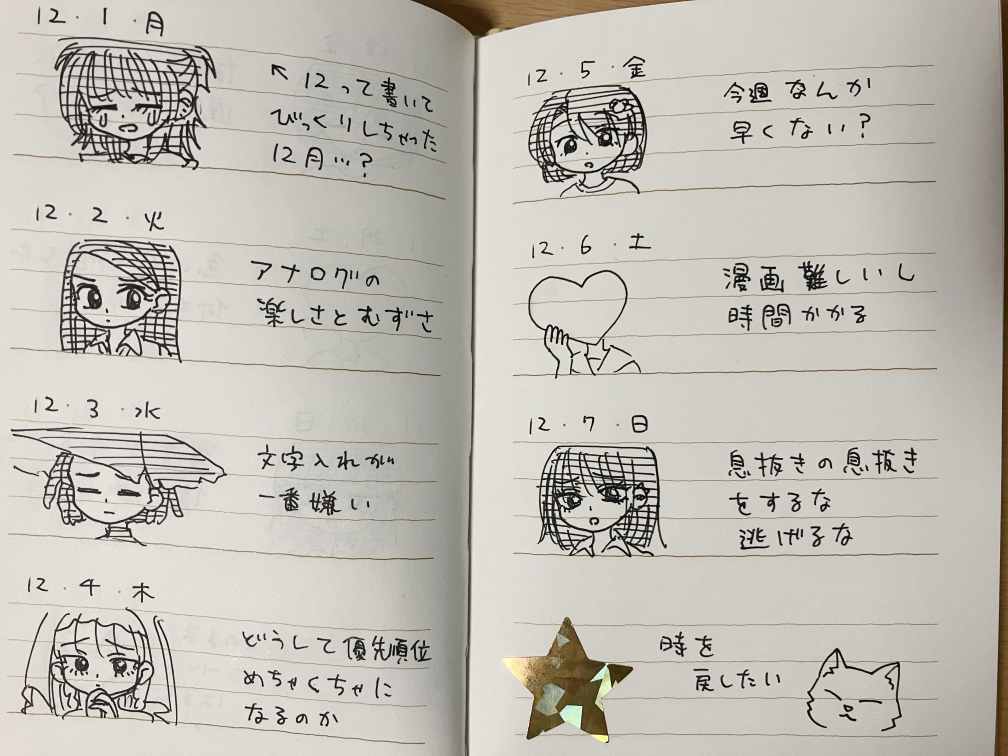 12・1・月
↖12って書いて
びっくりしちゃった
12月…?
12・2・火
アナログの
楽しさとむずさ
12・3・水
文字入れが
一番嫌い
12・4・木
どうして優先順位
めちゃくちゃに
なるのか
12・5・金
今週なんか
早くない?
12・6・土
漫画難しいし
時間かかる
12・7・日
息抜きの息抜き
をするな
逃げるな
時を
戻したい